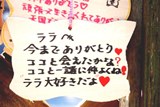 ララへ
今までありがとう
ココと会えたかな?
ココと一諸に仲よくね!
ララ大好きだよ♥